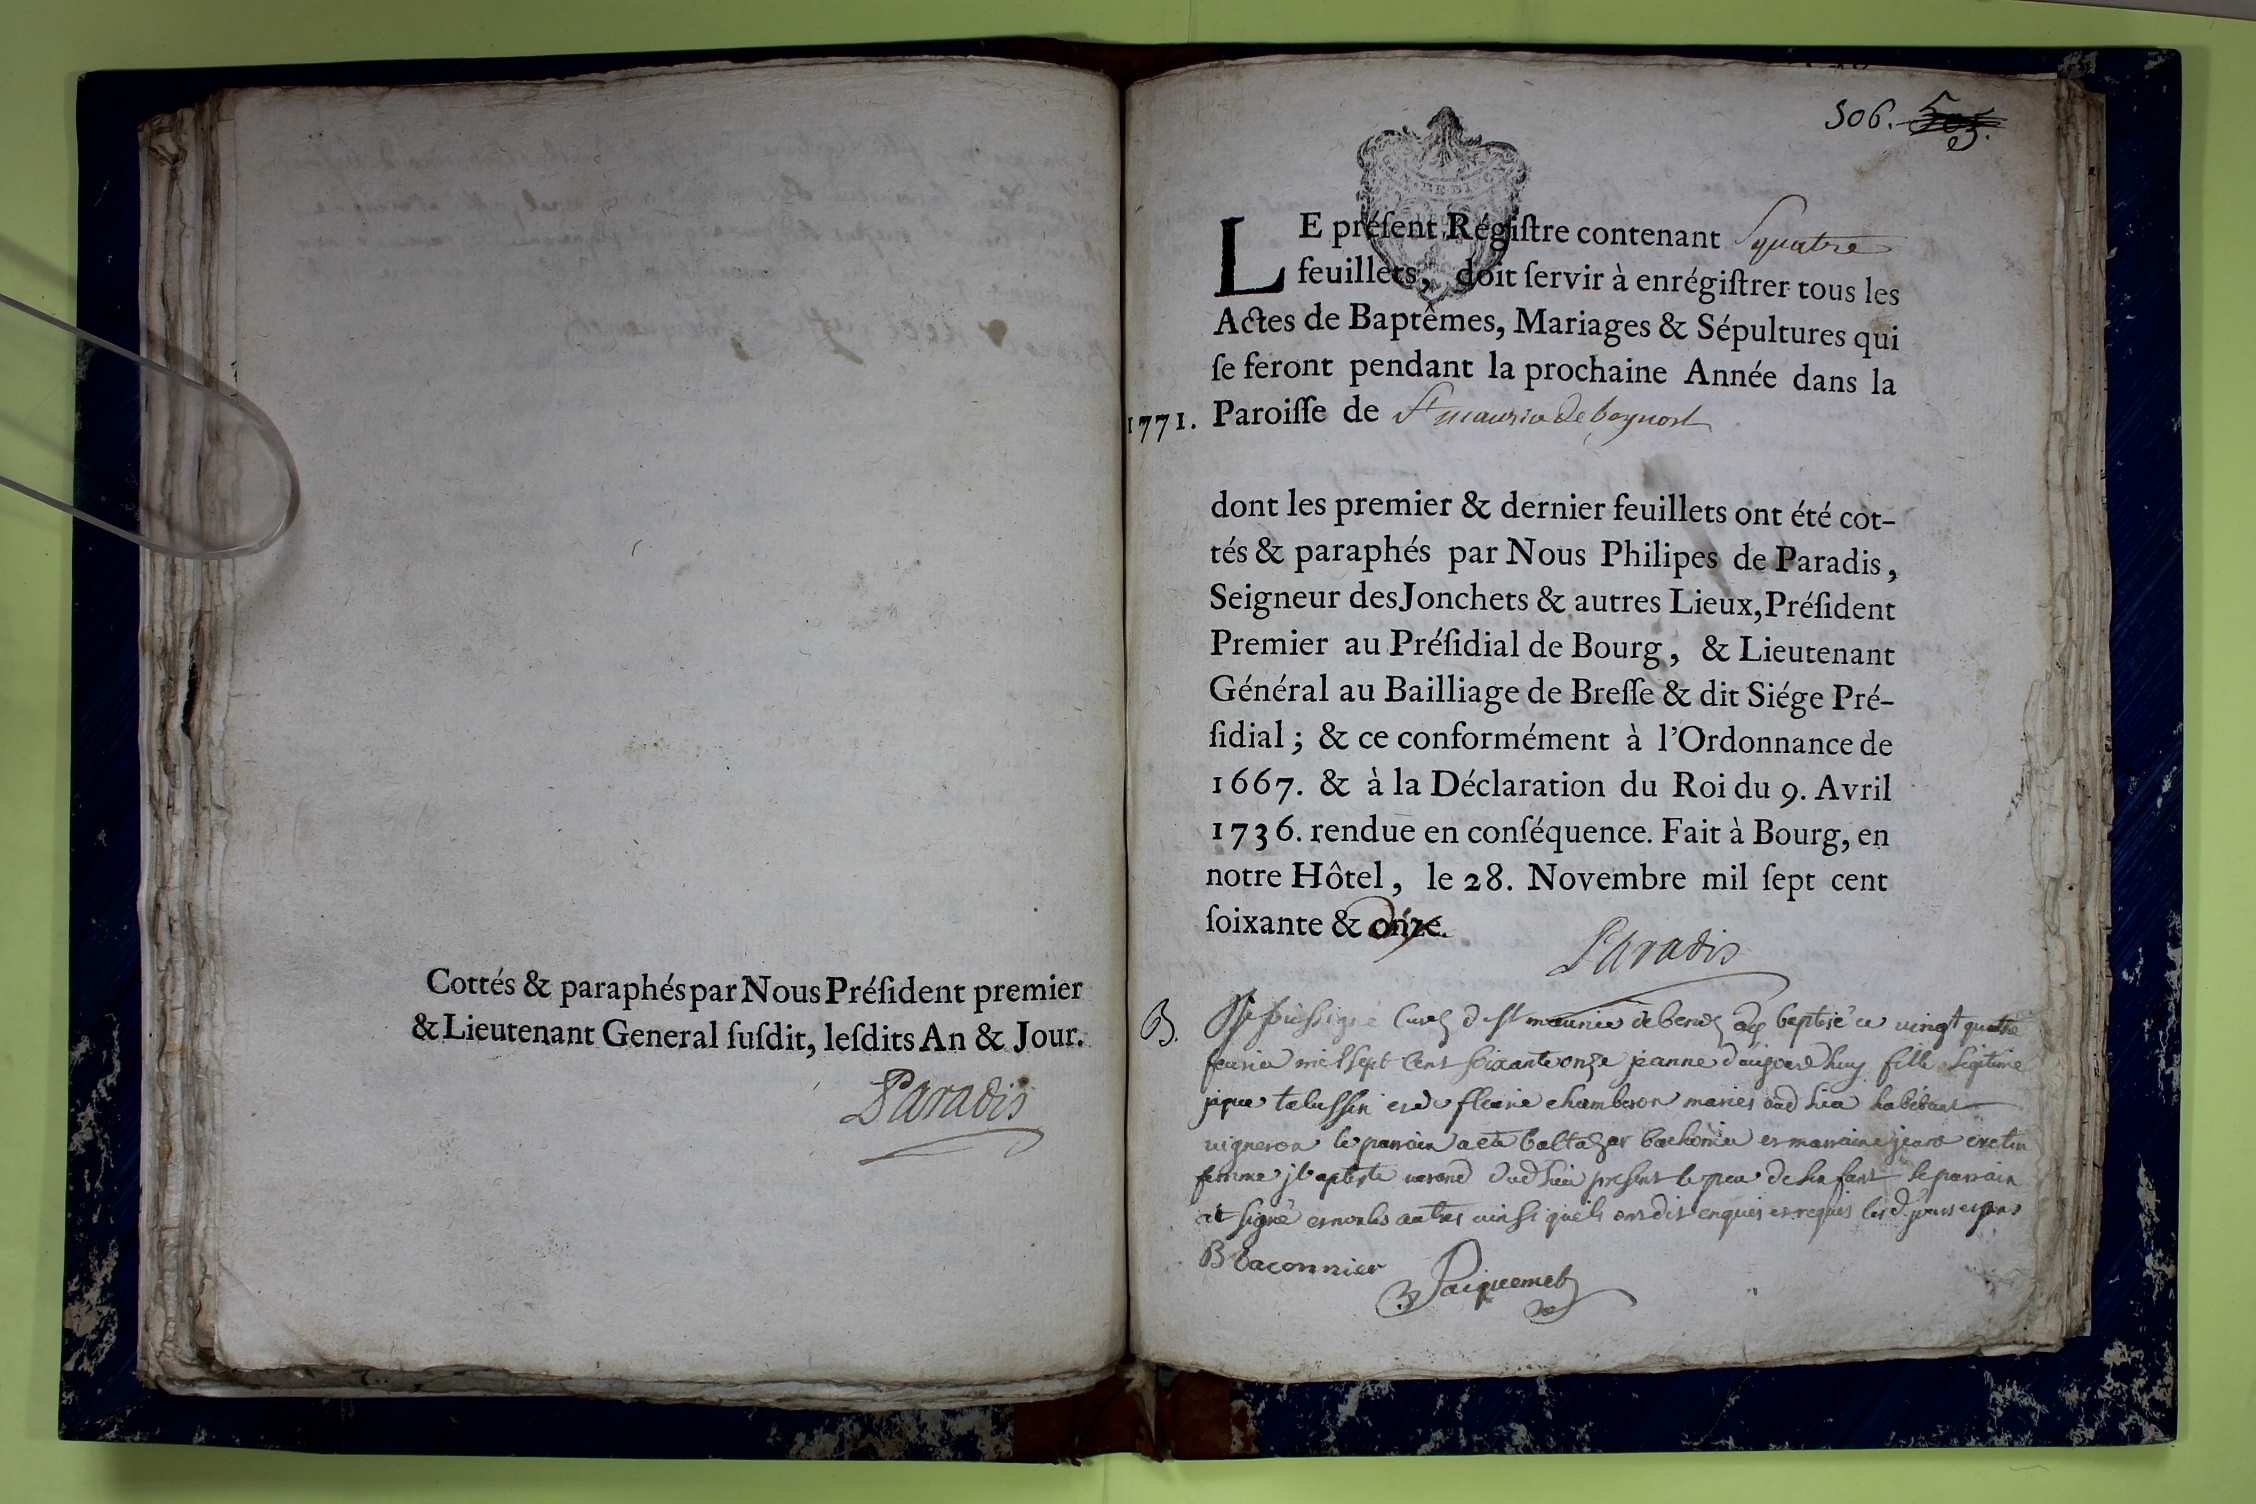 Cottés & paraphés par Nous Préſident premier
& Lieutenant General ſuſdit, leſdits An & Jour.
Paradis
506. 505.
LE préſent Régiſtre contenant quatre
feuillets, doit ſervir à enrégiſtrer tous les
Actes de Baptêmes, Mariages & Sépultures qui
ſe feront pendant la prochaine Année dans la
1771. Paroiſſe de St maurice de beynost
dont les premier & dernier feuillets ont été cot-
tés & paraphés par Nous Philipes de Paradis,
Seigneur des Jonchets & autres Lieux, Préſident
Premier au Préſidial de Bourg, & Lieutenant
Général au Bailliage de Breſſe & dit Siége Pré-
ſidial; & ce conformément à l'Ordonnance de
1667. & à la Déclaration du Roi du 9. Avril
1736. rendue en conſéquence. Fait à Bourg, en
notre Hôtel, le 28. Novembre mil ſept cent
ſoixante & onze. dix
Paradis
B. Je soussigné Curé de st maurice de baptisé ce vingt quatre
mil sept cent soixante onze jeanne d'aujourdhuy fille légitime
chamberon mariés habitant
vigneron le parrain a été baltazar et marraine
femme dud lieu présent le père de lenfant le parrain
at signé et non les autres ainsi quils ont dit enquis et requis
B baconnier
Paiquemet